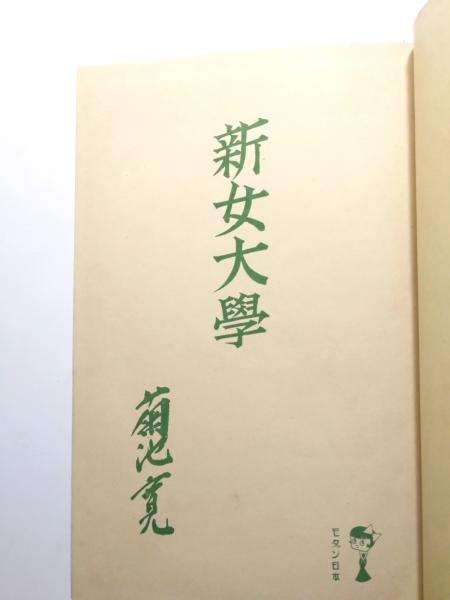 新女大學
菊池寛
モダン日本